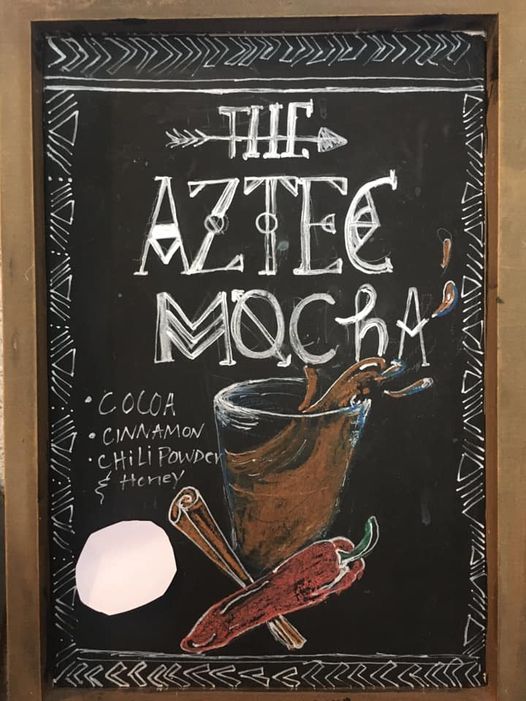 THE
AZTEC
MOCHA
• COCOA
• CINNAMON
• CHILI POWDER
& Honey